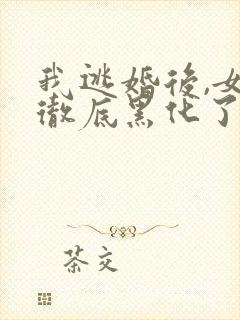 我逃婚後,女
徹底黑化了
茶交